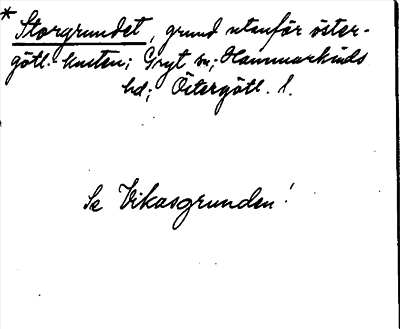 * Storgrundet, grund utanför öster-
götl. kusten; Gryt sn; Hammarkinds
hd; Östergötl. l.
Se Vikasgrunden!